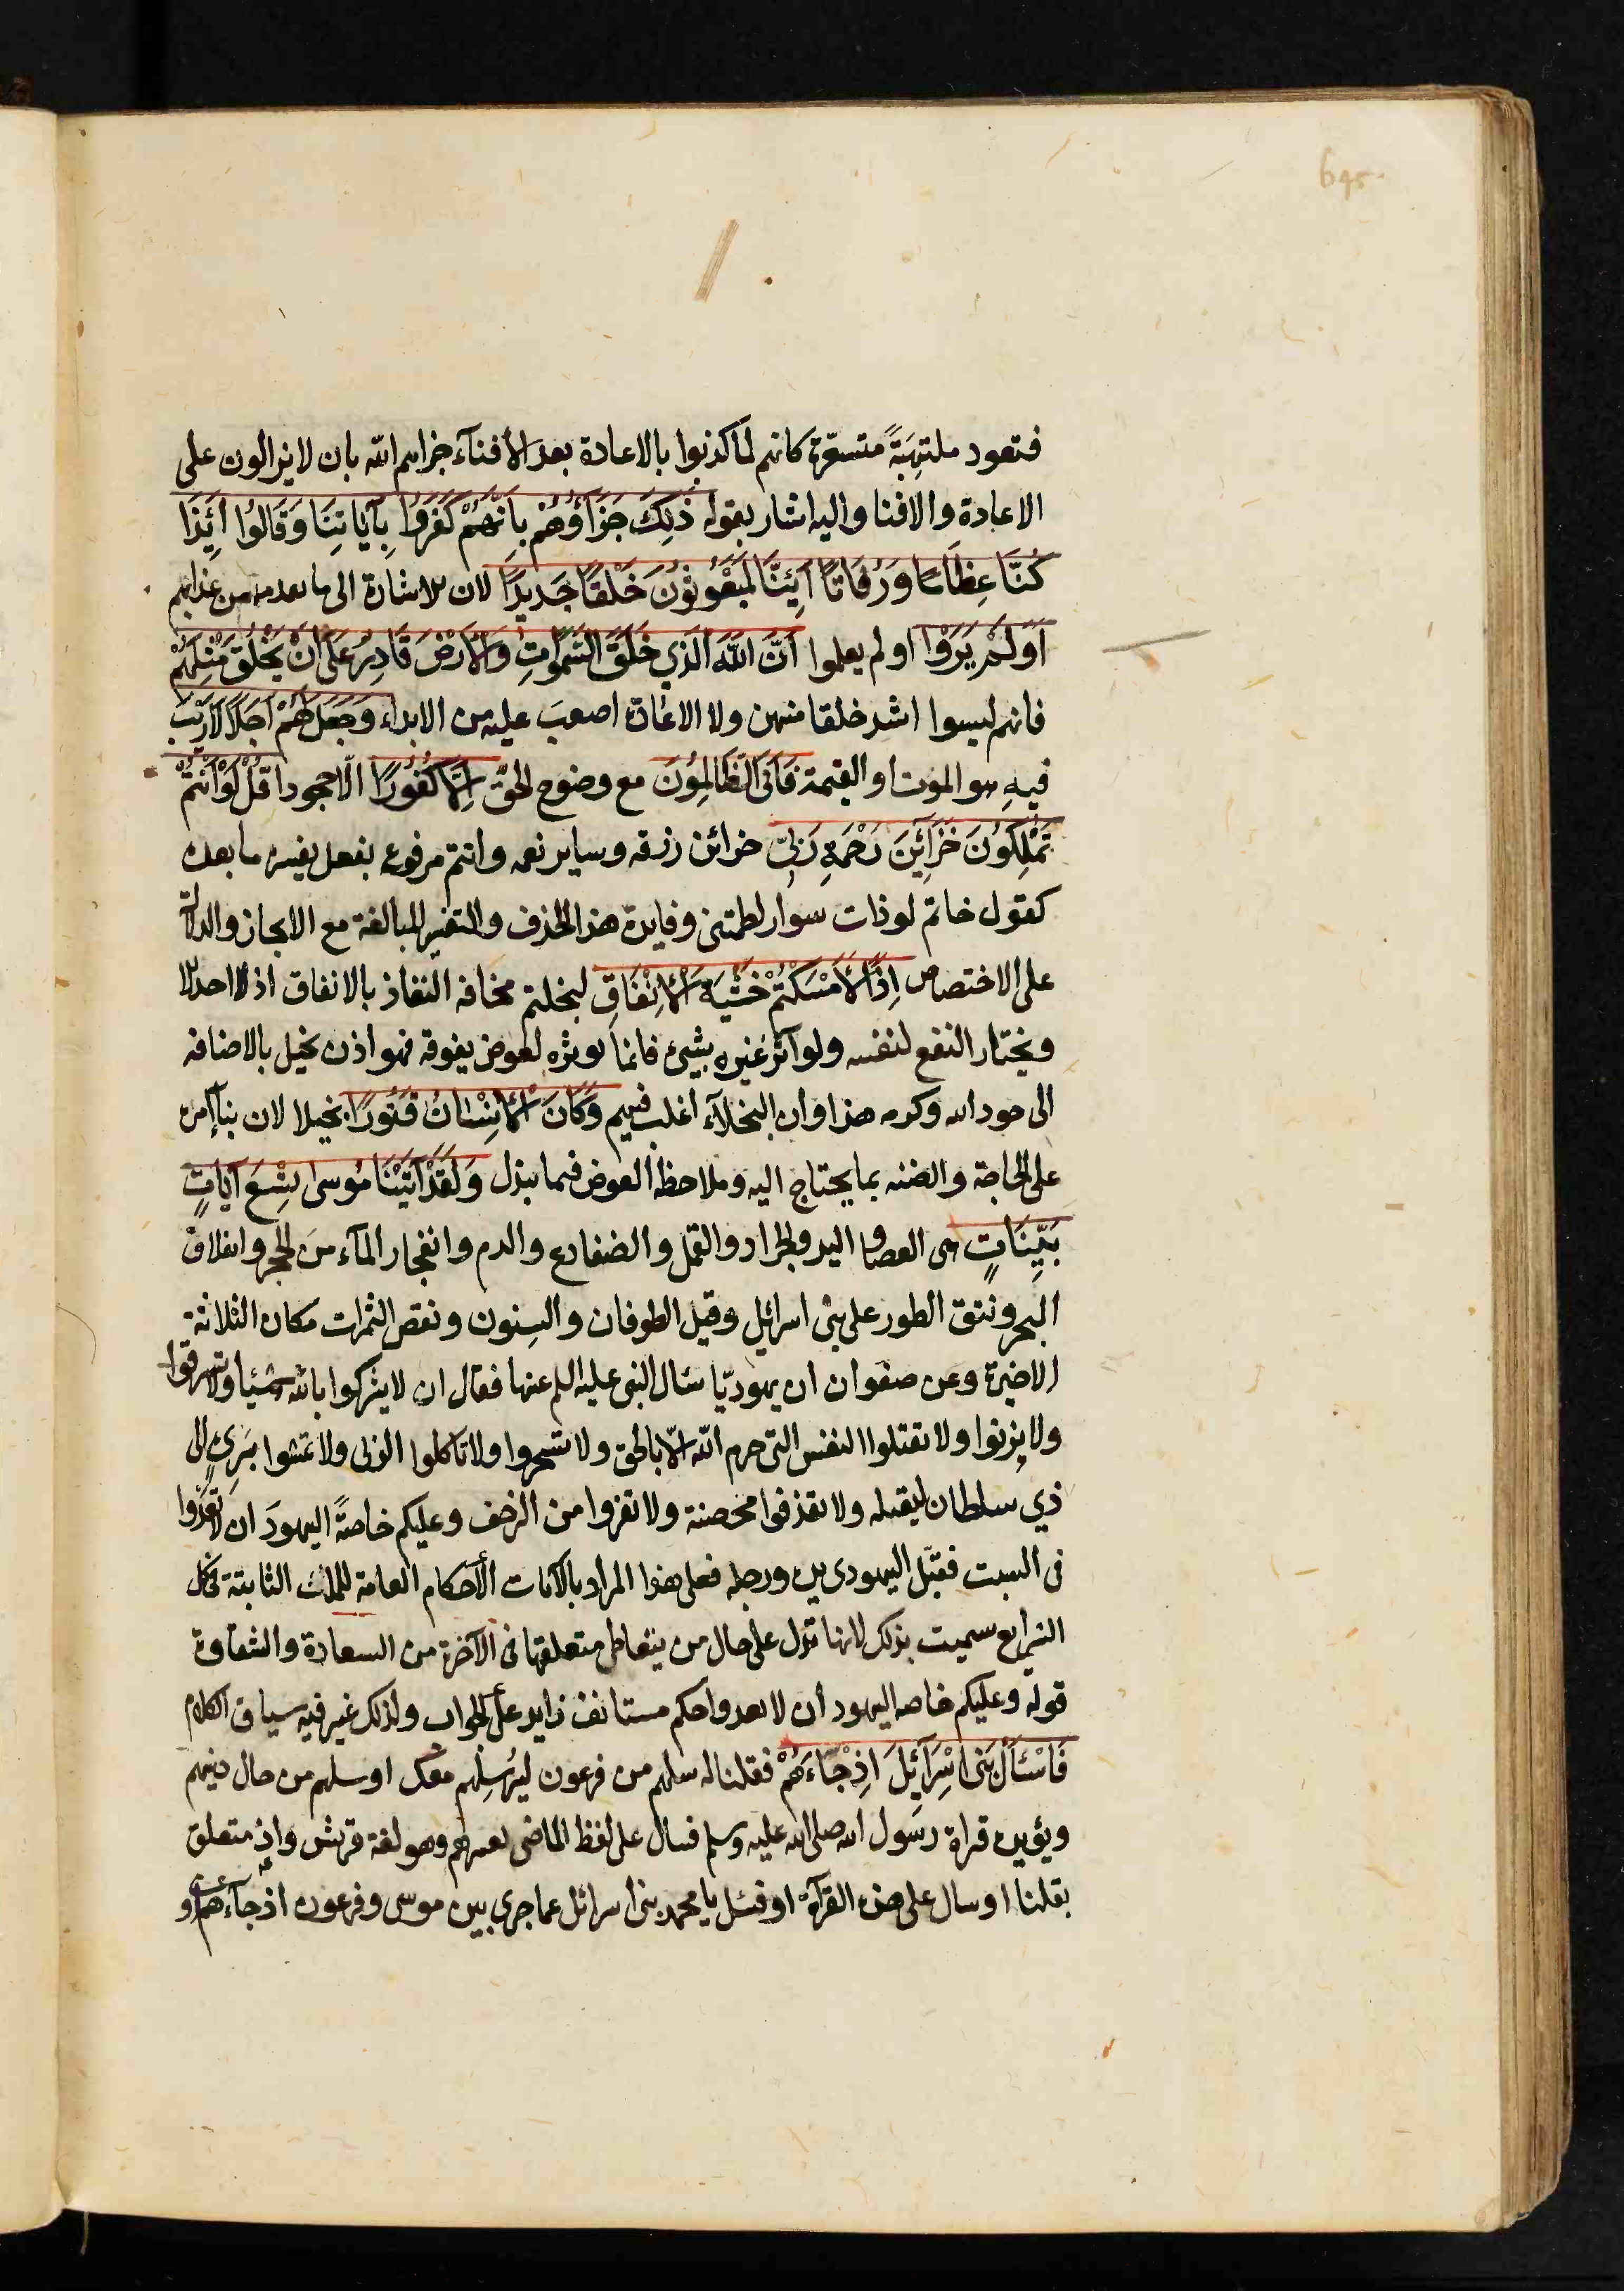 645
فتعود ملتهبةً متسعّرة كانهم لما كذبوا بالاعادة بعد الأفنآء جزاهم الله بان لا يزالون على
الاعادة والافنا واليه اشار بقوله ذٰلِكَ جَزَآؤُهُمْ بِاَنَّهُمْ كَفَرُوا بِآيَاتِنَا وَقَالُوا اَئِذَا
كُنَّا عِظَامًا وَرُفَاتًا اَئِنَّا لَمَبْعُوثُونَ خَلْقًا جَدِيدًا لان الاشارة الى ما تقدم من عذابهم
اَوَلَمْ يَرَوْا اولم يعلموا اَنَّ اللّٰهَ الَّذِي خَلَقَ السَّمٰوَاتِ وَالْاَرْضَ قَادِرٌ عَلٰى اَنْ يَخْلُقَ مِثْلَهُمْ
فانهم ليسوا اشد خلقا منهن ولا الاعادة اصعبَ عليه من الابداء وَجَعَلَ لَهُمْ اَجَلًا لَارَيْبَ
فيهِ هو الموت او القيمة فَاَبَى الظَّالِمُونَ مع وضوح الحقّ اِلَّا كُفُورًا الّا جحودا قُلْ لَوْ اَنْتُمْ
تَمْلِكُونَ خَزَائِنَ رَحْمَةِ رَبِّى خزائن رزقه وساير نعمه وانتم مرفوع بفعل يفسره ما بعده
كقول حاتم لو ذات سوار لطمتنى وفايدة هذا الحذف والتفسير للمبالغة مع الايجاز والدلالة
على الاختصاص اِذًا لَاَمْسَكْتُمْ خَشْيَةَ الْاِنْفَاقِ لبخلتم مخافة النفاذ بالانفاق اذ لا احد الا
ويختار النفع لنفسه ولو آثر غيره بشئ فانما يوثره لعوض يفوقه فهو اذن بخيل بالاضافة
الى جود الله وكرمه هذا وان البخلآء اغلب فيهم وَكَانَ الْاِنْسَانُ قَتُورًا بخيلا لان بنآ امره
على الحاجة والضنه بما يحتاج اليه وملاحظة العوض فيما يبذل وَلَقَدْ آتَيْنَا مُوسٰى تِسْعَ آيَاتٍ
بَيِّنَاتٍ هى العصا و اليد والجراد والقمل والضفادع والدم وانفجار المآء من الحجر وانفلاق
البحر ونتق الطور على بنى اسرائيل وقيل الطوفان والسنون ونقص الثمرات مكان الثلاثة
الاخيرة وعن صفوان ان يهوديّا سئال النبى عليه السلم عنها فقال ان لا يشركوا بالله شيئا ولا تسرقوا
ولا يزنوا ولا تقتلوا النفس التى حرم الله الّا بالحق ولا تسحروا ولا تاكلوا الربى ولا تمشوا ببرئ الى
ذي سلطان ليقتله ولا تقذفوا محصنة ولا تفروا من الزحف وعليكم خاصةً اليهودَ ان لا تعدوا
فى السبت فقبّل اليهودى يده ورجله فعلى هذا المراد بالآيات الأحكام العامة للملل الثابتة فى كل
الشرايع سميت بذلك لانها تدل على حال من يتعاطى متعلقها فى الآخرة من السعادة والشقاوة
قوله وعليكم خاصه اليهود ان لا تعدوا حكم مستانف زايد على الجواب ولذلك غير فيه سياق الكلام
فَاسْئَالْ بَنِى اِسْرَائِيلَ اِذْ جَآءَهُمْ فقلنا له سلهم من فرعون ليُرسِلهم معك او سلهم من حال دينهم
ويؤيده قراة رسول الله صلى الله عليه وسلم فسال على لفظ الماضى بغير همز وهو لغة قريش واذ متعلق
بقلنا او سال على هذه القرآة او فسئل يا محمد بنى اسرائل عما جرى بين موسى وفرعون اذ جآءهم او